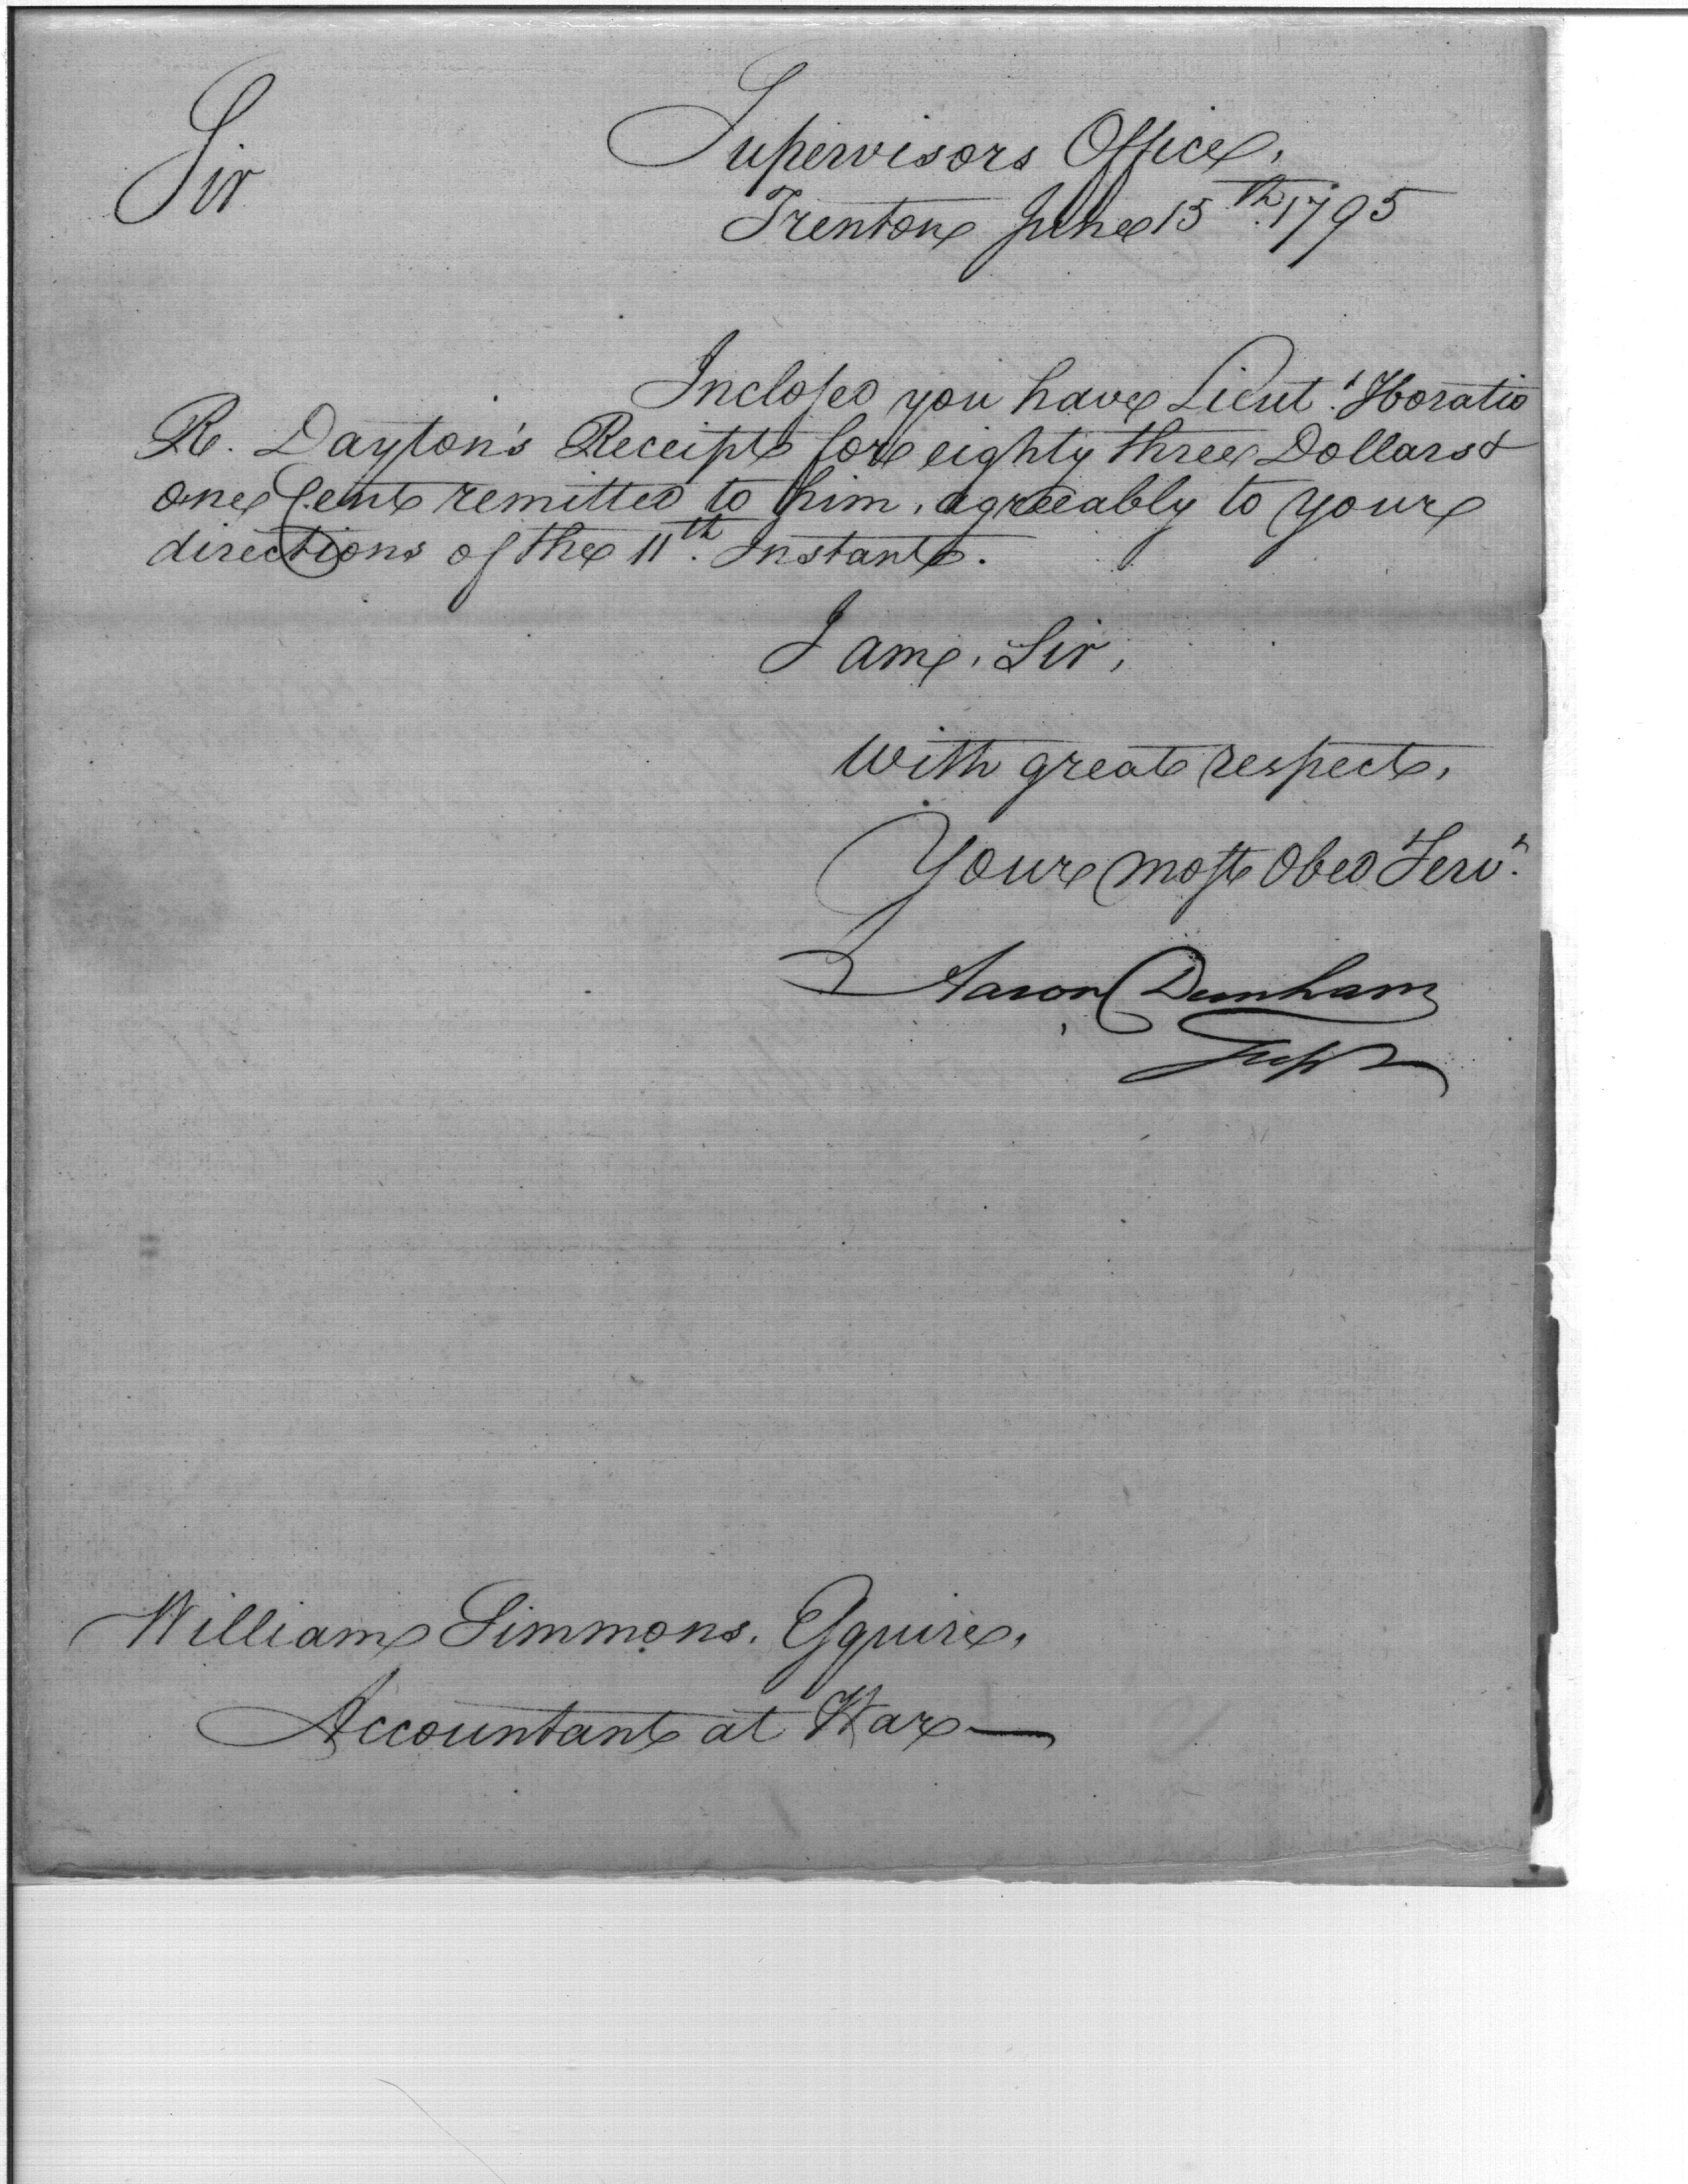 Sir
Supervisors Office,
Trenton June 15th. 1795
Inclosed you have Lieut. Horatio
R. Dayton's Receipt for eighty three Dollars &
one Cent remitted to him, agreeably to your
directions of the 11th. Instant.
I am, Sir,
with great respect,
Your most Obed Servt.
Aaron Dunham
Supr
William Simmons, Esquire,
Accountant at War